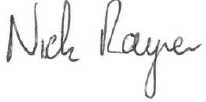 Nick Rayner